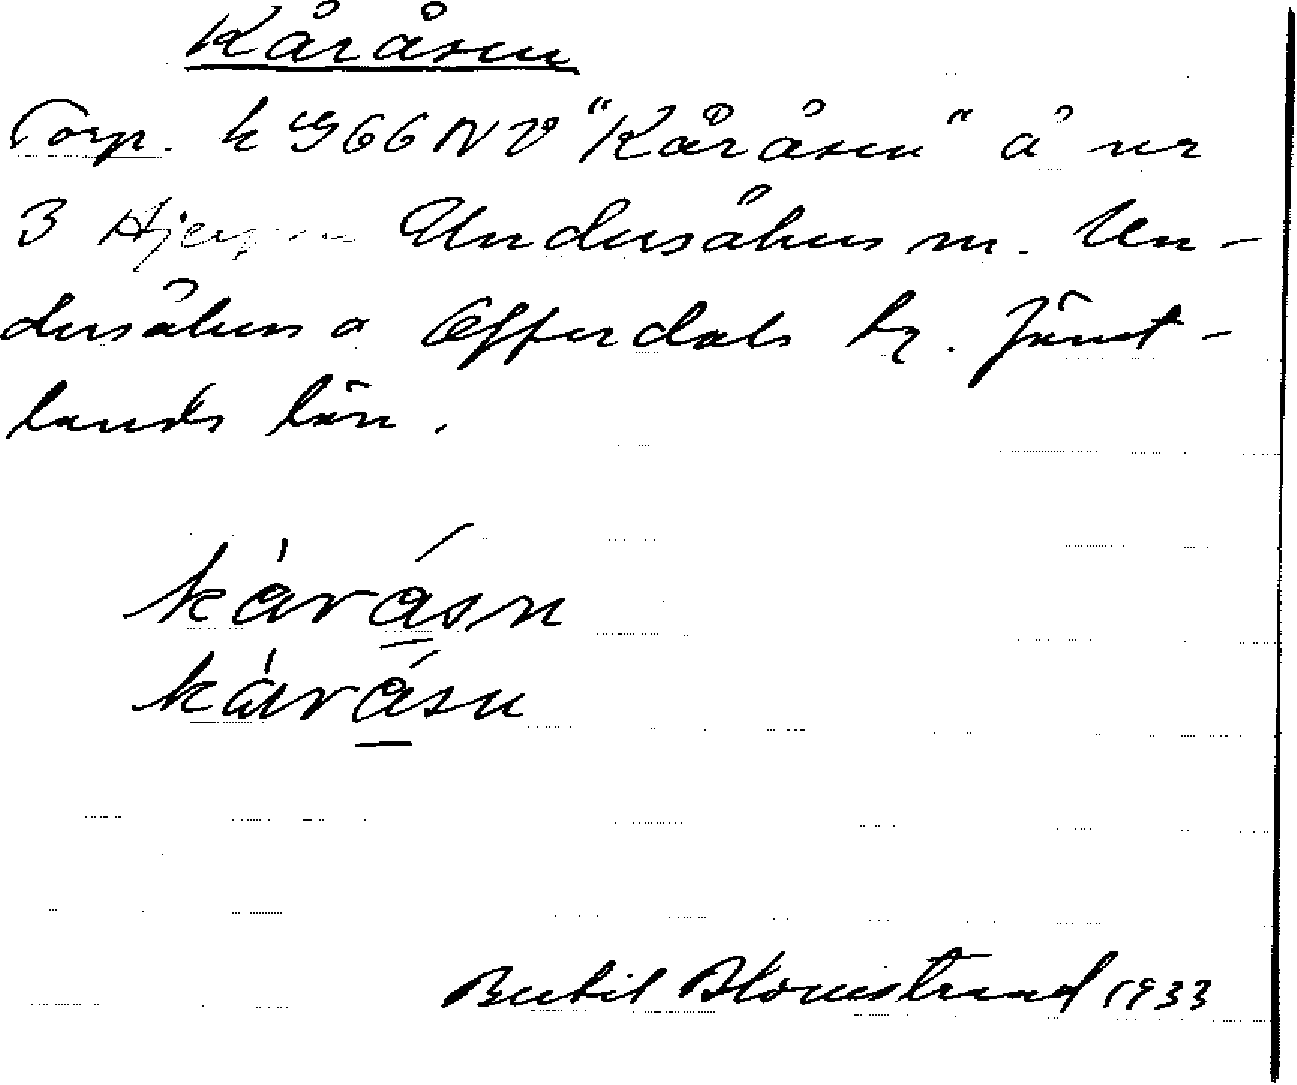 Kåråsen
Torp. k G66NV "Kåråsen" å nr
3 Undersåkers m. Un-
dersåkers o Offerdals hg. Jämt-
lands län.
kåråsn
kåråsn
Bertil Blomstrand 1933